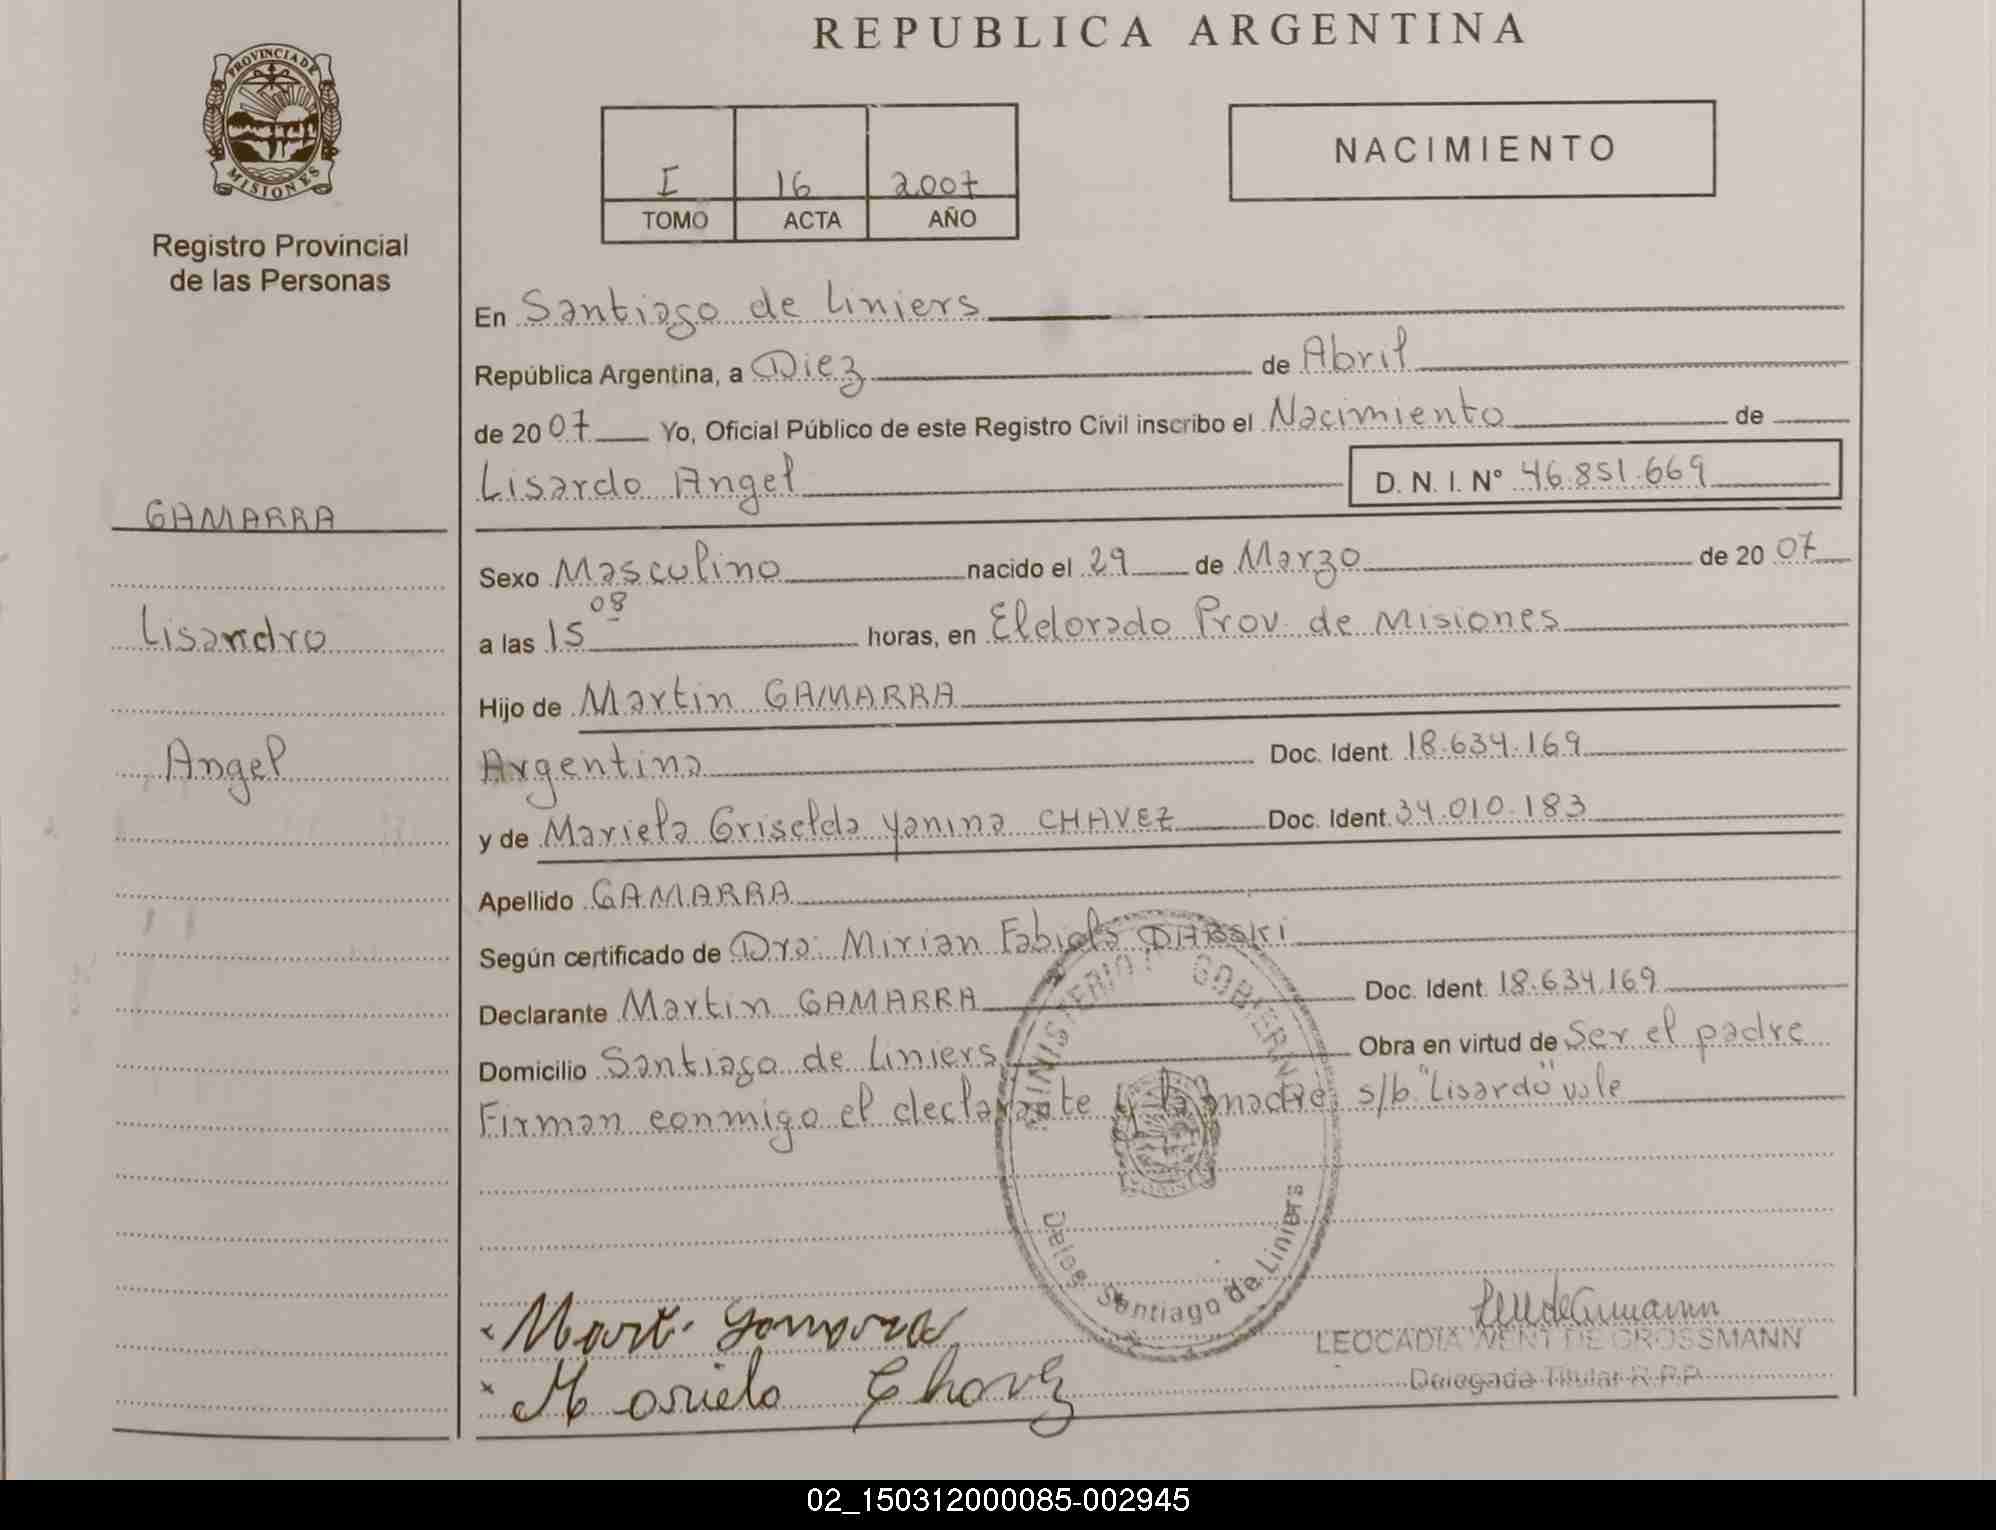 REPUBLICA ARGENTINA
PROVINCIA DE
MISIONES
Registro Provincial
de las Personas
I 16 2007
TOMO ACTA AÑO
NACIMIENTO
En Santiago de Liniers
República Argentina, a Diez de Abril
de 2007 Yo, Oficial Público de este Registro Civil inscribo el Nacimiento de
Lisardo Angel D. N. I. Nº 46.851.669
GAMARRA
Sexo Masculino nacido el 29 de Marzo de 2007
Lisandro
a las 15 08 horas, en Eldorado Prov. de Misiones
Hijo de Martin GAMARRA
Angel
Argentina Doc. Ident. 18.634.169
y de Mariela Griselda Yanina CHAVEZ Doc. Ident. 34.010.183
Apellido GAMARRA
Según certificado de Dra. Mirian Fabiola
Declarante Martin GAMARRA Doc. Ident. 18.634.169
Domicilio Santiago de Liniers Obra en virtud de Ser el padre
Firman conmigo el declarante y la madre s/b "Lisardo" vale
MINISTERIO GOBIERN
Deleg. Santiago de Liniers
Mart. Gamarra
Mariela Chavez
LEOCADIA WENT DE GROSSMANN
Delegada Titular R.P.P.
02_150312000085-002945